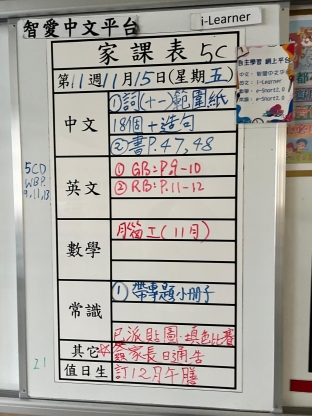 智愛中文平台
i-Learner
家課表 5C
第11週11月15日(星期五)
中文
①詞(十一)範圍紙
18個+造句
②書P.47,48
5CD
WBP.
9,11,13
英文
① GB:P.9-10
② RB:P.11-12
數學
腦工(11月)
常識
① 帶專題小冊子
已派貼圖、填色比賽
其它
簽家長日通告
值日生
訂12月午膳
21
自主學習 網上平台
中文:智愛中文平台
i-Learner